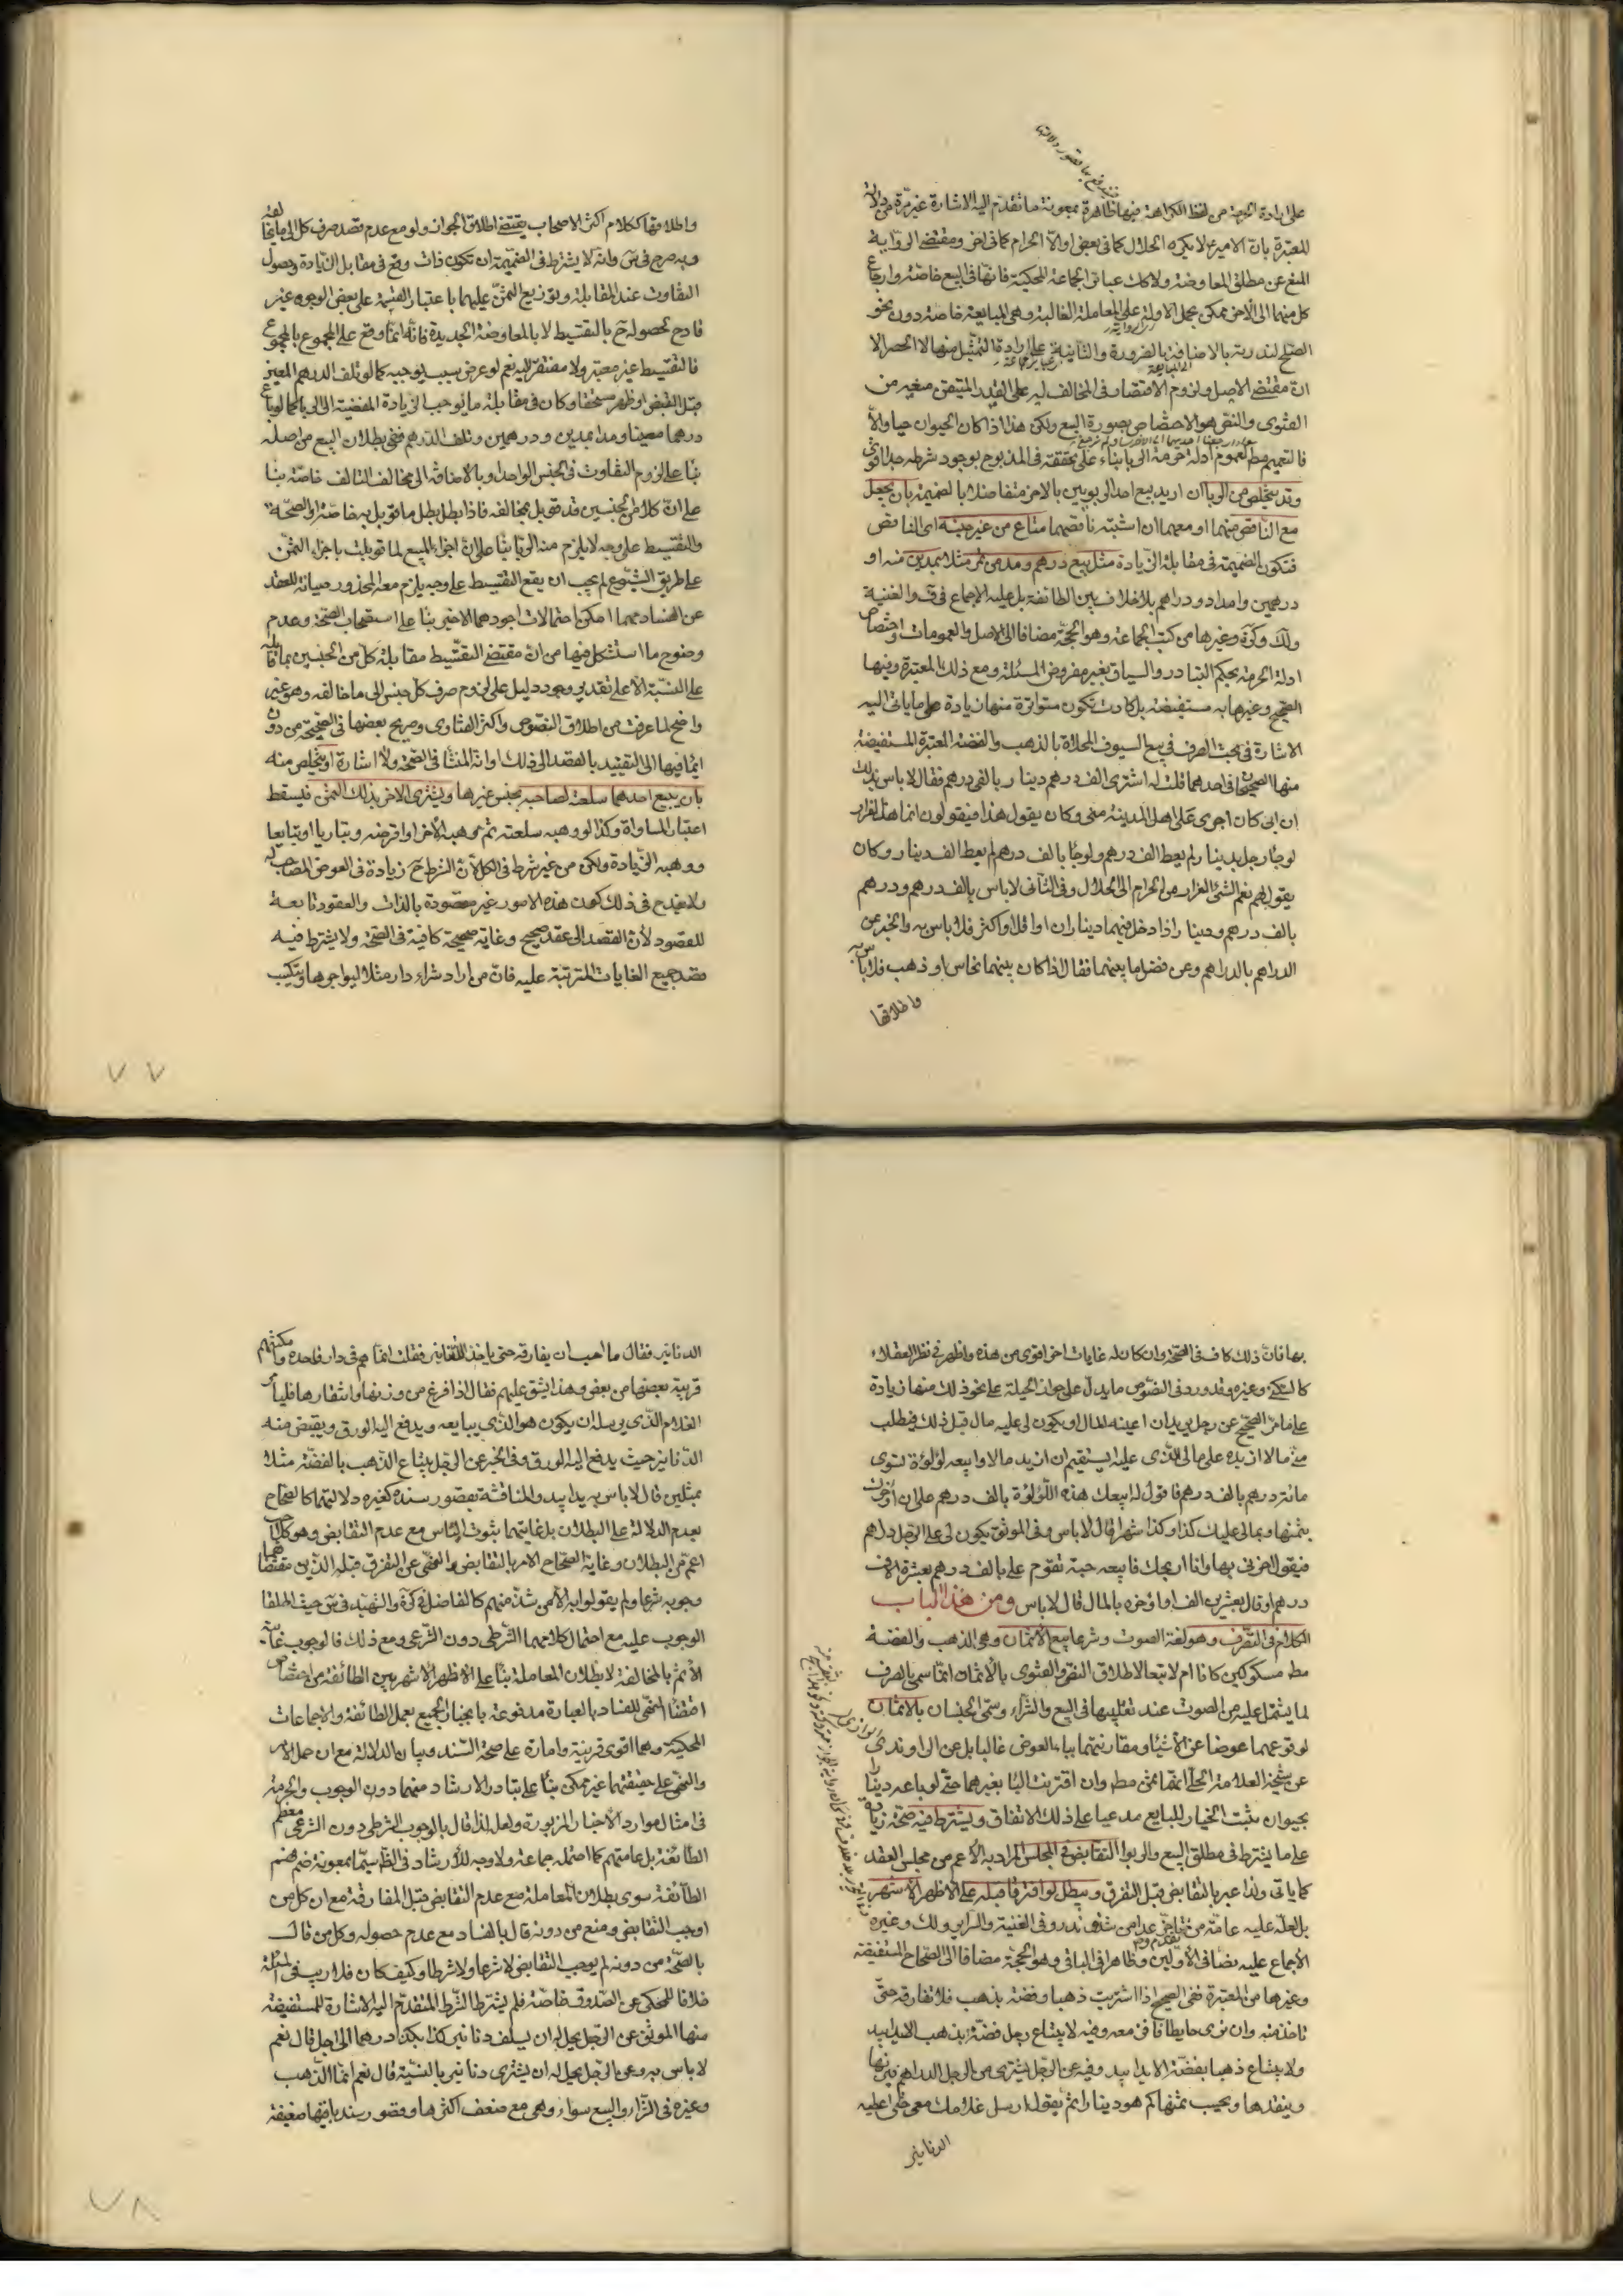 على ارادة الحرمة من لفظ الكراهة فيها ظاهرة بمعونة ما تقدم اليه الاشارة غير مرة من دلالة
المعتبرة بان الامير ع لا يكره الحلال كما فى بعض او الا الحرام كما فى اخر ومقتضى الرواية
المنع عن مطلق المعاوضة ولا كك عبائر الجماعة المحكية فانها فى البيع خاصة وارجاع
كل منهما الى الاخر ممكن بحمل الاولة على المعاملة الغالبة وهى المبايعة خاصة دون نحو
الصلح لندرته بالاضافة بالضرورة والثانية على ارادة التمثيل منها لا الحصر الا
ان مقتضى الاصل ولزوم الاقتصار فى المخالف له على القدر المتيقن من
الفتوى والنص هو الاختصاص بصورة البيع ولكن هذا اذا كان الحيوان حيا والا
فالتعميم مط لعموم ادلة حرمة الربا بناء على تحققه فى المذبوح بوجود شرطه جدا قوى
وقد يتخلص من الربا ان اريد بيع احد الربويين بالاخر متفاضلا بالضميمة بان يجعل
مع الناقص منهما او معهما ان اشتبه ناقصهما متاع من غير جنسه اى الناقص
فتكون الضميمة فى مقابلة الزيادة مثل بيع درهم ومد من تمر مثلا بمدين منه او
درهمين وامداد ودراهم بلا خلاف بين الطائفة بل عليه الاجماع فى ف والغنية
ولك وكرة وغيرها من كتب الجماعة وهو الحجة مضافا الى الاصل والعمومات واختصاص
ادلة الحرمة بحكم التبادر والسياق بغير مفروض المسئلة ومع ذلك المعتبرة وفيها
الصحيح وغيرها به مستفيضة بل كادت تكون متواترة منها زيادة على ما ياتى اليه
الاشارة فى بحث الصرف فى بيع السيوف المحلاة بالذهب والفضة المعتبرة المستفيضة
منها الصحيحان فى احدهما قلت له اشترى الف درهم ودينار بالفى درهم فقال لا باس بذلك
ان ابى كان اجرى على اهل المدينة منى وكان يقول هذا فيقولون انما هذا الفرار
لو جاء رجل بدينار لم يعط الف درهم ولو جاء بالف درهم لم يعط الف دينار وكان
يقول لهم نعم الشئ الفرار من الحرام الى الحلال وفى الثانى لا باس بالف درهم ودرهم
بالف درهم ودينار اذا دخل فيهما ديناران او اقل او اكثر فلا باس به والخبر عن
الدراهم بالدراهم وعن فضل ما بينهما فقال اذا كان بينهما نحاس او ذهب فلا باس به
واطلاقها
واطلاقها ككلام اكثر الاصحاب يقتضى اطلاق الجواز ولو مع عدم قصد صرف كل الى ما يخالفه
وبه صرح فى س وانه لا يشترط فى الضميمة ان تكون ذات وقع فى مقابل الزيادة وحصول
التفاوت عند المقابلة وتوزيع الثمن عليهما باعتبار القيمة على بعض الوجوه غير
قادح لحصوله ح بالتقسيط لا بالمعاوضة الجديدة فانه انما وقع على المجموع بالمجموع
فالتقسيط غير معتبر ولا مفتقر اليه نعم لو عرض سبب يوجبه كما لو تلف الدرهم المعين
قبل القبض او ظهر مستحقا وكان فى مقابلة ما يوجب الزيادة المفضية الى الربا كما لو باع
درهما معينا ومدا بمدين ودرهمين وتلف الدرهم ففى بطلان البيع من اصله
بناء على لزوم التفاوت فى الجنس الواحد او بالاضافة الى مخالف التالف خاصة بناء
على ان كلا من الجنسين قد قوبل بمخالفه فاذا بطل بطل ما قوبل به خاصة او الصحة
والتقسيط على وجه لا يلزم منه الربا بناء على ان اجزاء المبيع لما قوبلت باجزاء الثمن
على طريق الشيوع لم يجب ان يقع التقسيط على وجه يلزم معه المحذور صيانة للعقد
عن الفساد مهما امكن احتمالات اجودهما الاخير بناء على استصحاب الصحة وعدم
وضوح ما استشكل فيها من ان مقتضى التقسيط مقابلة كل من الجنسين بما قابله
على النسبة الا على تقدير وجود دليل على لزوم صرف كل جنس الى ما خالفه وهو غير
واضح لما عرفت من اطلاق النصوص واكثر الفتاوى وصريح بعضها فى الصحيحة من دون
ايماء فيها الى التقييد بالقصد الى ذلك او انه المنشأ فى الصحة ولا اشارة او يتخلص منه
بان يبيع احدهما سلعته لصاحبه بجنس غيرها ويشترى الاخر بذلك الثمن فيسقط
اعتبار المساواة وكذا لو وهبه سلعته ثم وهبه الاخر او اقرضه وتباريا او تبايعا
ووهبه الزيادة ولكن من غير شرط فى الكل لان الشرط ح زيادة فى العوض المصاحب له
ولا يقدح فى ذلك كون هذه الامور غير مقصودة بالذات والعقود تابعة
للقصود لان القصد الى عقد صحيح وغاية صحيحة كافية فى الصحة ولا يشترط فيه
قصد جميع الغايات المترتبة عليه فان من اراد شراء دار مثلا ليواجرها ويتكسب
٧٧
بها فان ذلك كاف فى الصحة وان كان له غايات اخر اقوى من هذه واظهر فى نظر العقلاء
كالسكنى وغيره وقد ورد فى النصوص ما يدل على جواز الحيلة على نحو ذلك منها زيادة
على ما مر الصحيح عن رجل يريد ان اعينه المال او يكون لى عليه مال قبل ذلك فيطلب
منى مالا ازيده على مالى الذى عليه ايستقيم ان ازيده مالا وابيعه لؤلؤة تسوى
مائة درهم بالف درهم فاقول له ابيعك هذه اللؤلؤة بالف درهم على ان اوخرك
بثمنها وبمالى عليك كذا وكذا شهرا قال لا باس وفى الموثق يكون لى على الرجل دراهم
فيقول اخرنى بها وانا اربحك فابيعه جبة تقوم على بالف درهم بعشرة الاف
درهم او قال بعشرين الف او اوخره بالمال قال لا باس ومن هذا الباب
الكلام فى الصرف وهو لغة الصوت وشرعا بيع الاثمان وهى الذهب والفضة
مط مسكوكين كانا ام لا تبعا لاطلاق النص والفتوى بالاثمان انما سمى بالصرف
لما يشتمل عليه من الصوت عند تقليبها فى البيع والشراء وسمى الجنسان بالاثمان
لوقوعهما عوضا عن الاشياء ومقارنتهما بباء العوض غالبا بل عن الراوندى
عن شيخنا العلامة الحلى انهما ثمن مط وان اقترنت الباء بغيرهما حتى لو باعه دينارا
بحيوان ثبت الخيار للبايع مدعيا على ذلك الاتفاق ويشترط فيه صحة زيادة
على ما يشترط فى مطلق البيع والربوا التقابض فى المجلس المراد به الاعم من مجلس العقد
كما ياتى ولذا عبر بالتقابض قبل التفرق ويبطل لو افترقا قبله على الاظهر الاشهر
بل عليه عامة من تاخر عدا من شذ وندر وفى الغنية والسرائر ولك وغيره
الاجماع عليه نصا فى الاولين وظاهرا فى الباقى وهو الحجة مضافا الى الصحاح المستفيضة
وغيرها من المعتبرة ففى الصحيح اذا اشتريت ذهبا وفضة بذهب فلا تفارقه حتى
تاخذ منه وان نزى حايطا فانز معه وفيه لا يبتاع رجل فضة بذهب الا يدا بيد
ولا يبتاع ذهبا بفضة الا يدا بيد وفيه عن الرجل يشترى من الرجل الدراهم فيزنها
وينقدها ويحسب ثمنها كم هو دينارا ثم يقول ارسل غلامك معى حتى اعطيه
الدنانير
الدنانير فقال ما احب ان يفارقه حتى ياخذ الدنانير فقلت انما هم فى دار واحدة وامكنتهم
قريبة بعضها من بعض وهذا يشق عليهم فقال اذا فرغ من وزنها وانتقادها فليامر
الغلام الذى يرسله ان يكون هو الذى يبايعه ويدفع اليه الورق ويقبض منه
الدنانير حيث يدفع اليه الورق وفى الخبر عن الرجل يبتاع الذهب بالفضة مثلا
بمثلين قال لا باس به يدا بيد والمناقشة بقصور سنده كغيره دلالتهما كالصحاح
بعدم الدلالة على البطلان بل غايتهما ثبوت الباس مع عدم التقابض وهو كالحجاب
اعم من البطلان وغاية الصحاح الامر بالتقابض والنهى عن التفرق قبله الذين مقتضاهما
وجوبه شرعا ولم يقولوا به الا من شذ منهم كالفاضل فى كرة والشهيد فى س حيث اطلقا
الوجوب عليه مع احتمال كلامهما الشرطى دون الشرعى ومع ذلك فالوجوب غايته
الاثم بالمخالفة لا بطلان المعاملة بناء على الاظهر الاشهر بين الطائفة من اختصاص
اقتضاء النهى للفساد بالعبادة مدفوعة بانجبار الجميع بعمل الطائفة والاجماعات
المحكية وهما اقوى قرينة وامارة على صحة السند وبيان الدلالة مع ان حمل الامر
والنهى على حقيقتهما غير ممكن بناء على تبادر الارشاد منهما دون الوجوب والحرمة
فى امثال موارد الاخبار المزبورة ولعل لذا قال بالوجوب الشرطى دون الشرعى معظم
الطائفة بل عامتهم كما احتمله جماعة ولا وجه للارشاد فى الظ سيما بمعونة فهم
الطائفة سوى بطلان المعاملة مع عدم التقابض قبل المفارقة مع ان كل من
اوجب التقابض ومنع من دونه قال بالفساد مع عدم حصوله وكل من قال
بالصحة من دونه لم يوجب التقابض لا شرعا ولا شرطا وكيف كان فلا ريب فى المسئلة
خلافا للمحكى عن الصدوق خاصة فلم يشترط الشرط المتقدم اليه الاشارة للمستفيضة
منها الموثق عن الرجل يحل له ان يسلف دنانير كذا بكذا درهما الى اجل قال نعم
لا باس به وعن الرجل يحل له ان يشترى دنانير بالنسية قال نعم انما الذهب
وغيره فى الشراء والبيع سواء وهى مع ضعف اكثرها وقصور سند باقيها ضعيفة
٧٨